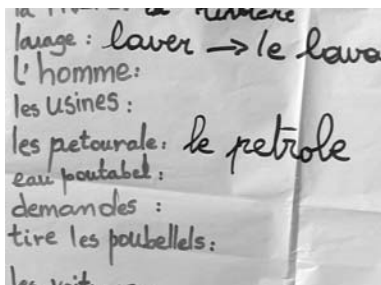 la rivière
lavage : laver → le lava
L'homme :
les usines :
les petourale : le petrole
eau poutabel :
demandes :
tire les poubellels :
les